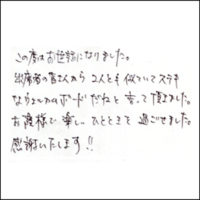 この度はお世話になりました。
出席者の皆さんから 2人とも似ていてステキ
なウェルカムボードだねと言って頂きました。
お陰様で楽しいひとときを過ごせました。
感謝いたします!!